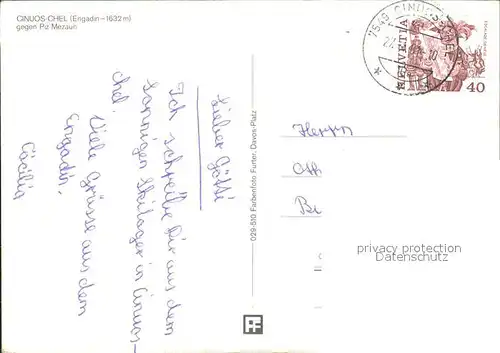 CINUOS-CHEL (Engadin - 1632 m)
gegen Piz Mezaun
Lieber Götti
Ich schreibe Dir aus dem
sonnigen Skilager in Cinuos-
chel.
Viele Grüsse aus dem
Engadin,
Cäcilia
029-510 Farbenfoto Furter, Davos-Platz
7549 CINUOS-CHEL
HELVETIA
40
Herrn
privacy protection
Datenschutz